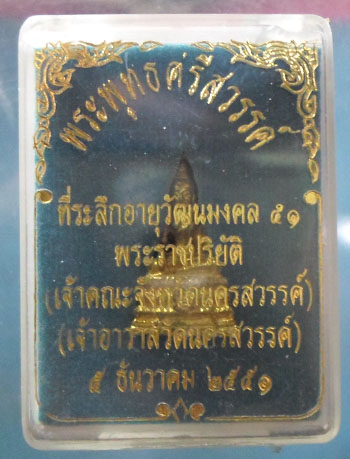 พระพุทธศรีสวรรค์
ที่ระลึกอายุวัฒนมงคล ๕๑
พระราชปริยัติ
(เจ้าคณะจังหวัดนครสวรรค์)
(เจ้าอาวาสวัดนครสวรรค์)
๕ ธันวาคม ๒๕๕๑